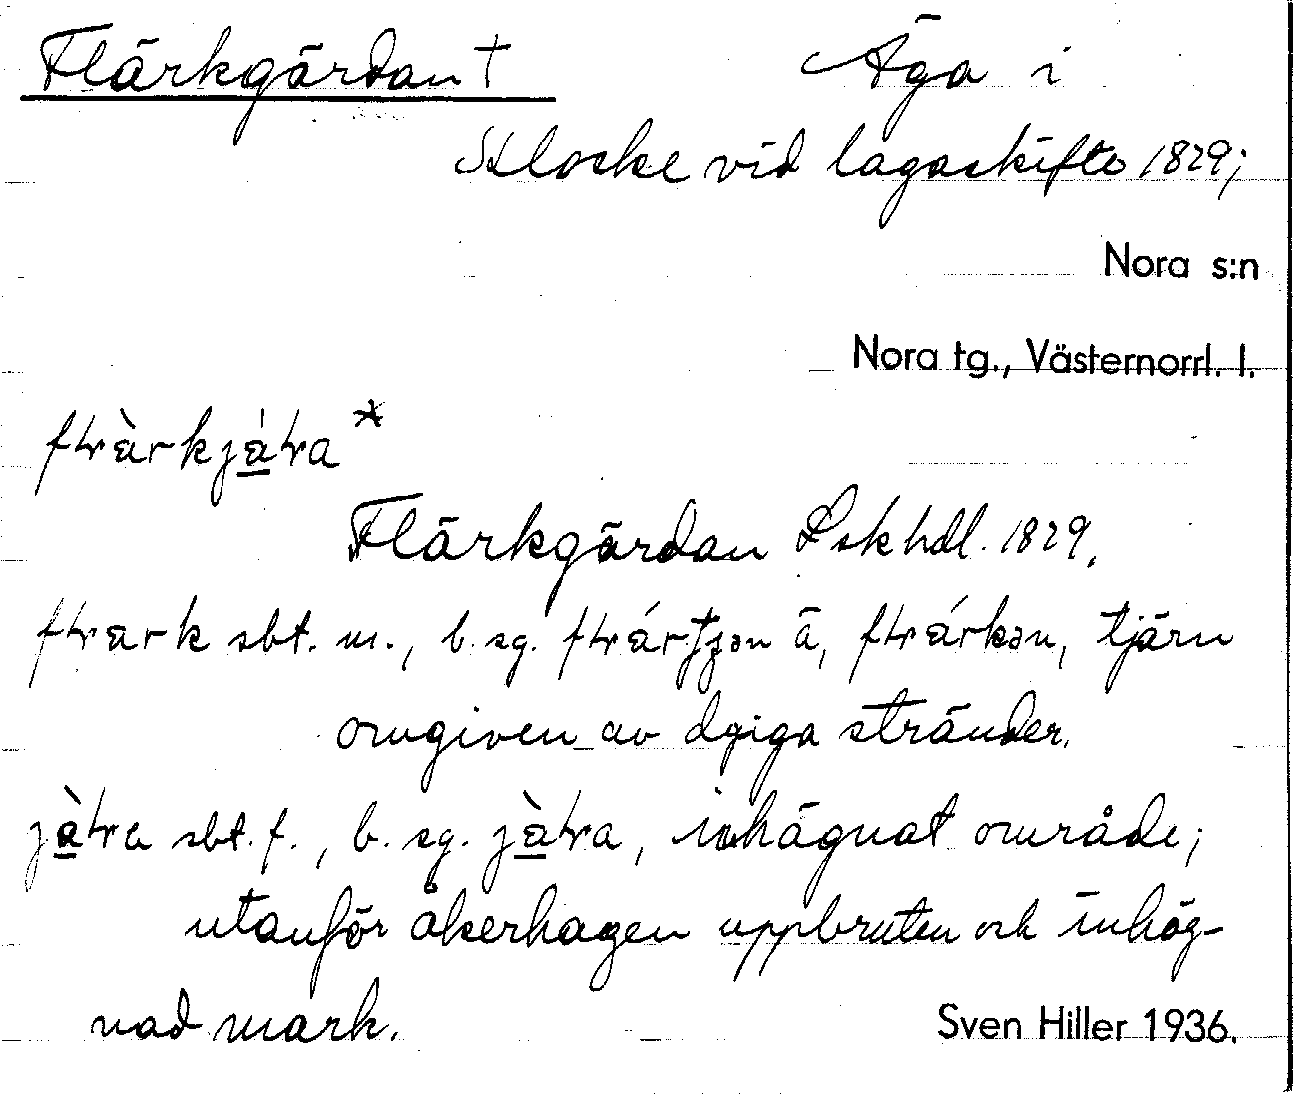 Flärkgärdan † Äga i
Klocke vid lagaskifte 1829;
Nora s:n
Nora tg., Västernorrl. l.
Flärkgärdan Lskhdl. 1829.
sbt. m., b. sg. å, tjärn
omgiven av dyiga stränder.
sbt. f., b. sg. inhägnat område;
utanför åkerhagen uppbruten och inhäg-
nad mark. Sven Hiller 1936.